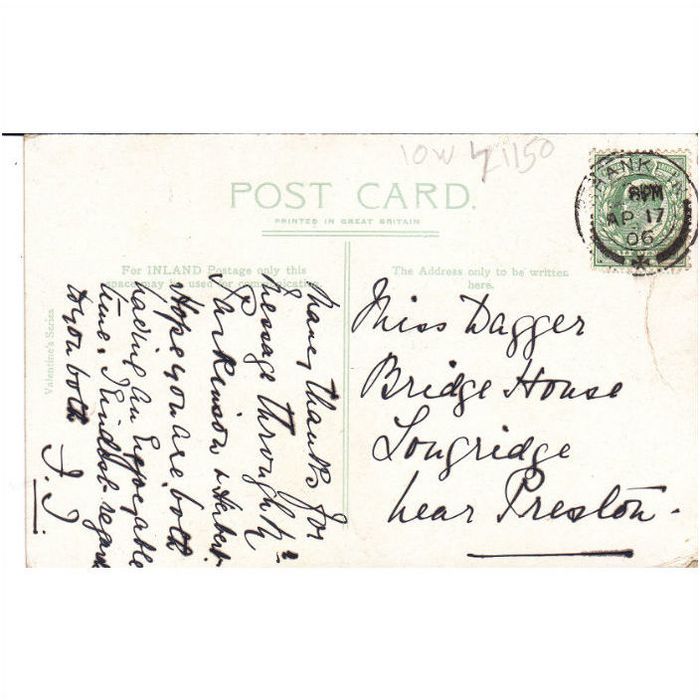 IOW 1150
POST CARD.
PRINTED IN GREAT BRITAIN
SHANKLIN
8 PM
AP 17
06
For INLAND Postage only this
space may be used for communication
The Address only to be written
here.
Valentine's Series
Miss Dagger
Bridge House
Longridge
near Preston.
Many thanks for
message through Mr
Parkinson & Herbert
Hope you are both
having an Enjoyable
time. Kindest regards
to you both